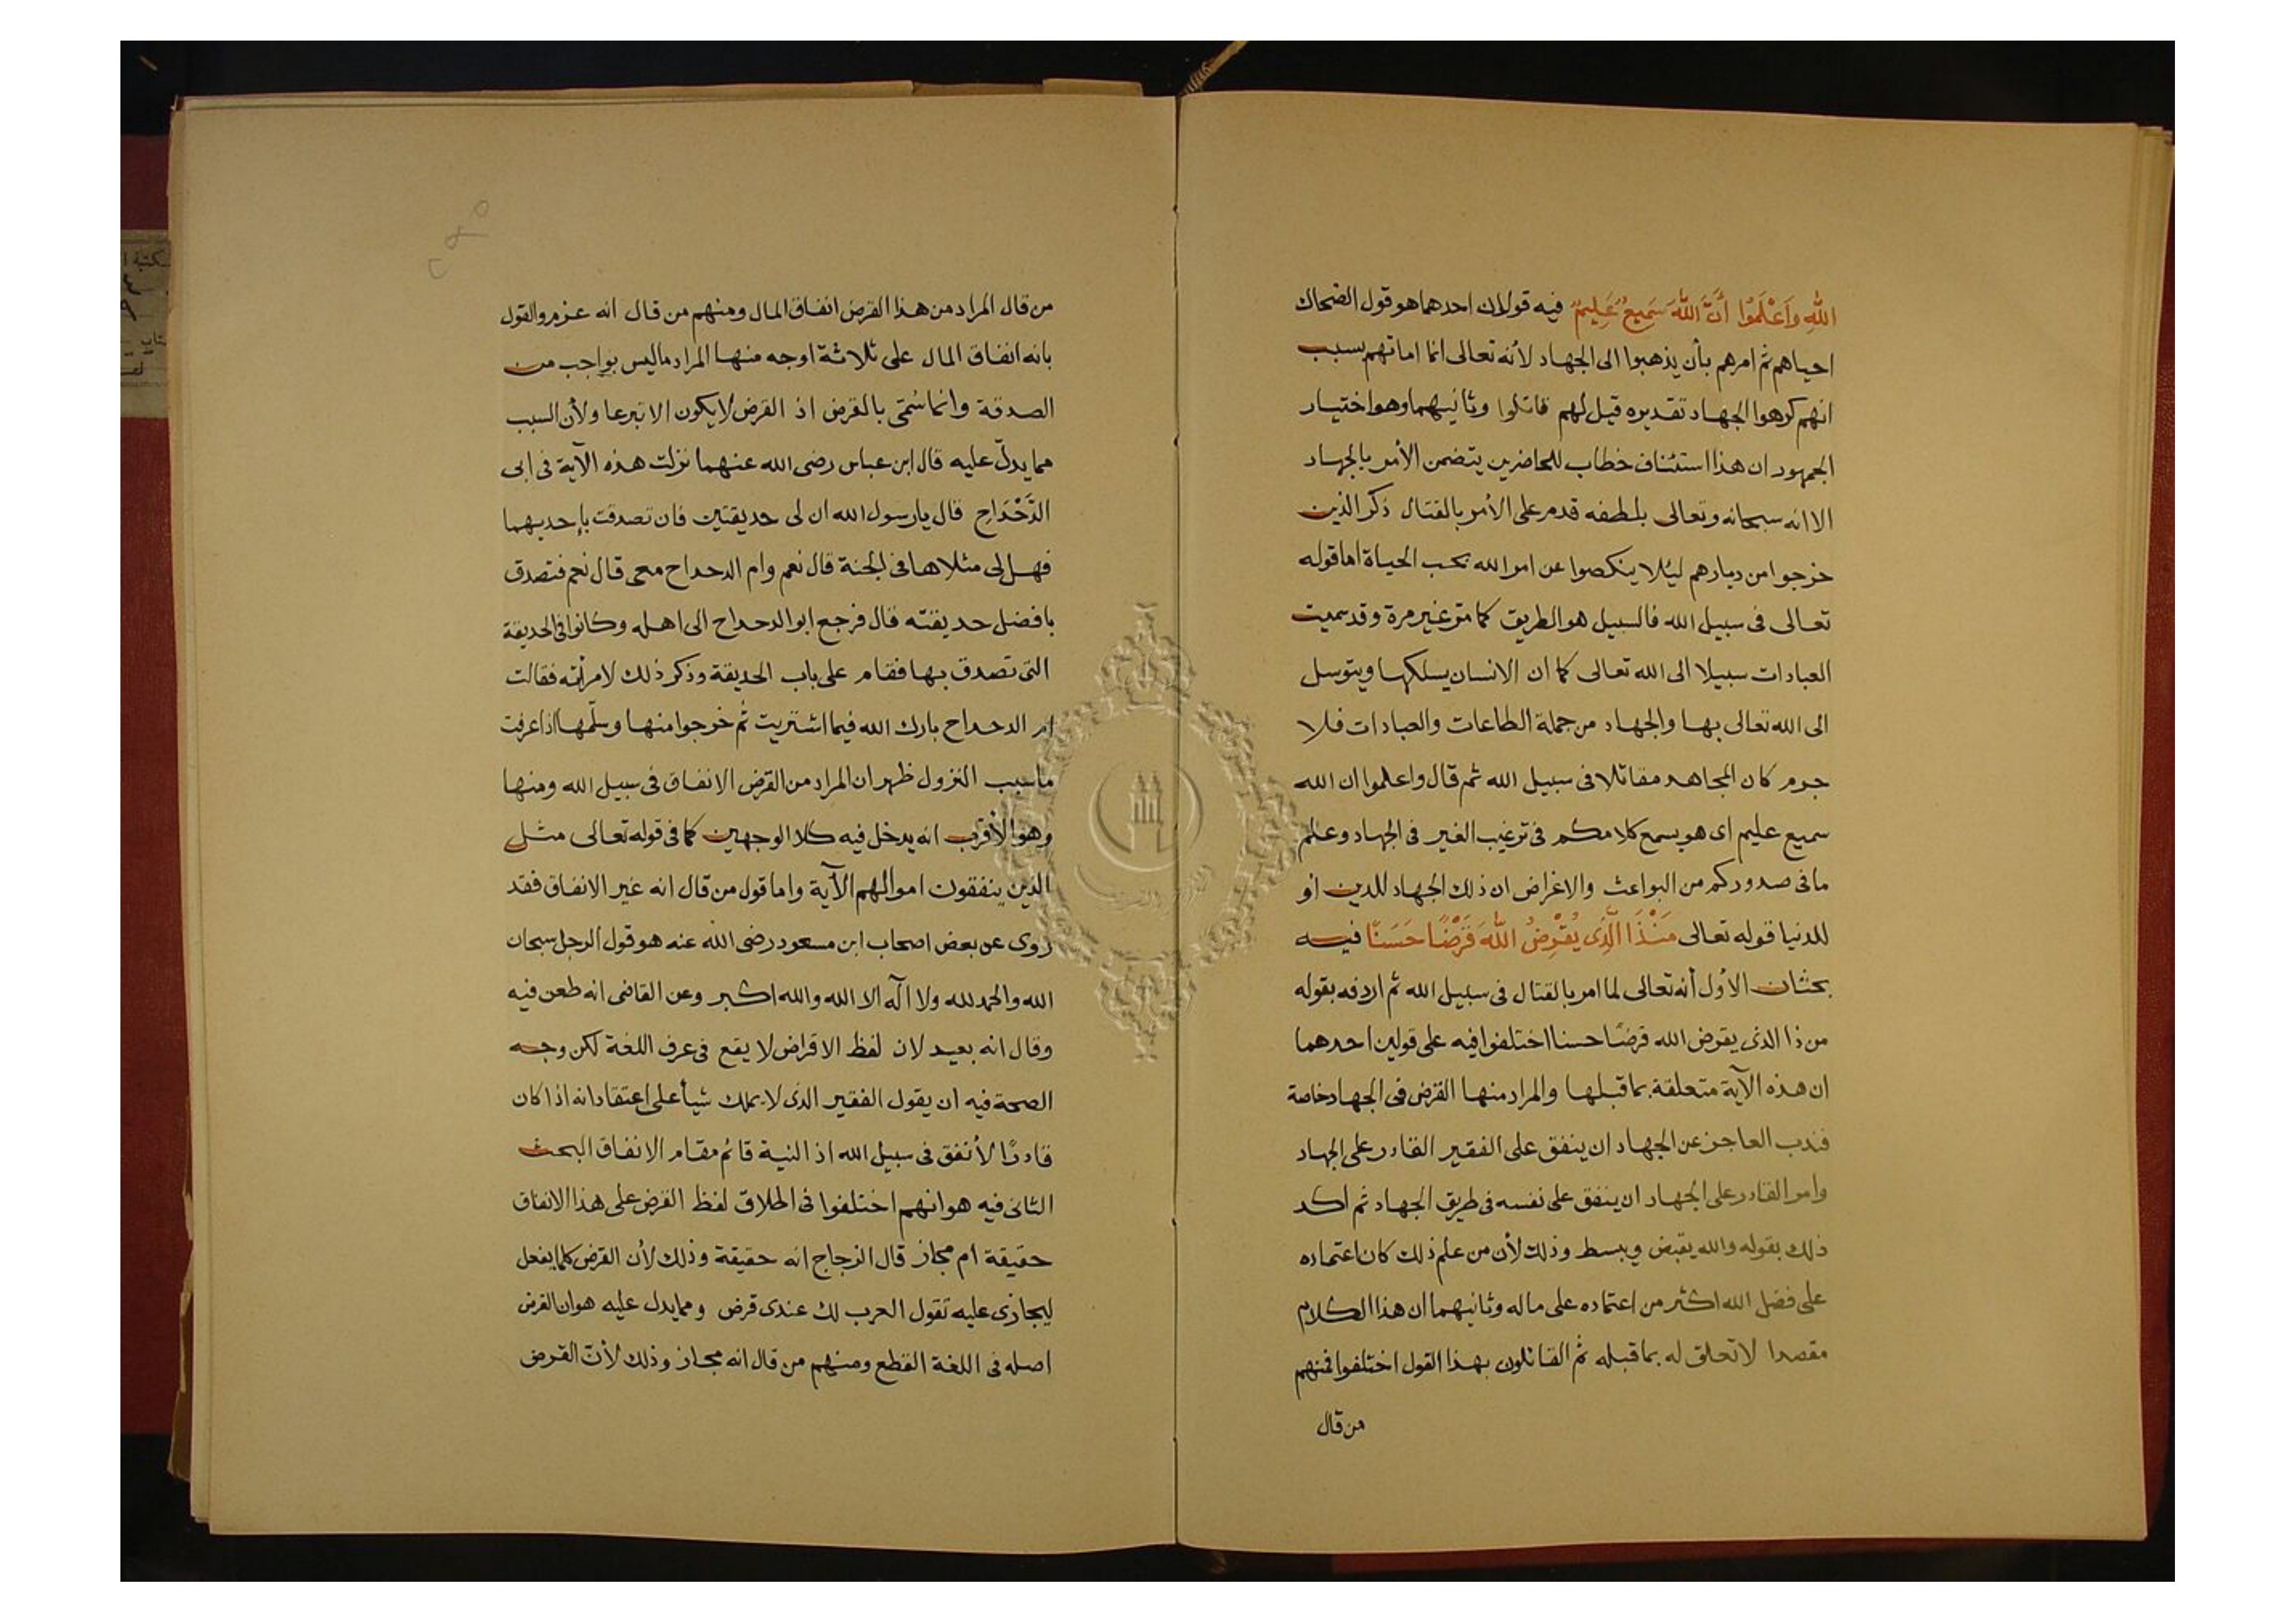 اللهِ وَاعْلَمُوا أَنَّ اللّٰهَ سَمِيعٌ عَلِيمٌ فيه قولان احدهما هو قول الضحاك
احياهم ثم امرهم بأن يذهبوا الى الجهاد لأنه تعالى انما اماتهم بسبب
انهم كرهوا الجهاد تقديره قيل لهم قاتلوا وثانيهما وهو اختيار
الجمهور ان هذا استئناف خطاب للحاضرين يتضمن الأمر بالجهاد
الا انه سبحانه وتعالى بلطفه قدم على الأمر بالقتال ذكر الذين
خرجوا من ديارهم ليئلا ينكصوا عن امر الله بحب الحياة اما قوله
تعالى فى سبيل الله فالسبيل هو الطريق كما مر غير مرة وقد سميت
العبادات سبيلا الى الله تعالى كما ان الانسان يسلكها ويتوسل
الى الله تعالى بها والجهاد من جملة الطاعات والعبادات فلا
جرم كان المجاهد مقاتلا فى سبيل الله ثم قال واعلموا ان الله
سميع عليم اى هو يسمع كلامكم فى ترغيب الغير فى الجهاد وعلم
ما فى صدوركم من البواعث والاغراض ان ذلك الجهاد للدين او
للدنيا قوله تعالى مَنْذَا الَّذِى يُقْرِضُ اللّٰهَ قَرْضًا حَسَنًا فيه
بحثان الأول أنه تعالى لما امر بالقتال فى سبيل الله ثم اردفه بقوله
من ذا الذى يقرض الله قرضًا حسنا اختلفوا فيه على قولين احدهما
ان هذه الآية متعلقة بما قبلها والمراد منها القرض فى الجهاد خاصة
فندب العاجز عن الجهاد ان ينفق على الفقير القادر على الجهاد
وامر القادر على الجهاد ان ينفق على نفسه فى طريق الجهاد ثم اكد
ذلك بقوله والله يقبض ويبسط وذلك لأن من علم ذلك كان اعتماده
على فضل الله اكثر من اعتماده على ماله وثانيهما ان هذا الكلام
مقصدا لا تعلق له بما قبله ثم القائلون بهذا القول اختلفوا فمنهم
من قال
من قال المراد من هذا القرض انفاق المال ومنهم من قال انه عزم والقول
بانه انفاق المال على ثلاثة اوجه منها المراد ما ليس بواجب من
الصدقة وانما سُمّى بالقرض اذ القرض لا يكون الا تبرعا ولأن السبب
مما يدلّ عليه قال ابن عباس رضى الله عنهما نزلت هذه الآية فى ابى
الدَّحْدَاحِ قال يا رسول الله ان لى حديقتين فان تصدقت بإحديهما
فهل لى مثلاها فى الجنة قال نعم وام الدحداح معى قال نعم فتصدق
بافضل حديقته قال فرجع ابو الدحداح الى اهله وكانوا فى الحديقة
التى تصدق بها فقام على باب الحديقة وذكر ذلك لامرأته فقالت
ام الدحداح بارك الله فيما اشتريت ثم خرجوا منها وسلّمها اذا عرفت
ما سبب النزول ظهر ان المراد من القرض الانفاق فى سبيل الله ومنها
وهو الأقرب انه يدخل فيه كلا الوجهين كما فى قوله تعالى مثل
الذين ينفقون اموالهم الآية واما قول من قال انه غير الانفاق فقد
روى عن بعض اصحاب ابن مسعود رضى الله عنه هو قول الرجل سبحان
الله والحمد لله ولا اله الا الله والله اكبر وعن القاضى انه طعن فيه
وقال انه بعيد لان لفظ الاقراض لا يقع فى عرف اللغة لكن وجه
الصحة فيه ان يقول الفقير الذى لا يملك شيأ على اعتقاد انه اذا كان
قادرًا لأنفق فى سبيل الله اذ النية قائم مقام الانفاق البحث
الثانى فيه هو انهم اختلفوا فى اطلاق لفظ القرض على هذا الانفاق
حقيقة ام مجاز قال الزجاج انه حقيقة وذلك لأن القرض كلما يفعل
ليجازى عليه تقول العرب لك عندى قرض ومما يدل عليه هو ان القرض
اصله فى اللغة القطع ومنهم من قال انه مجاز وذلك لأنّ القرض